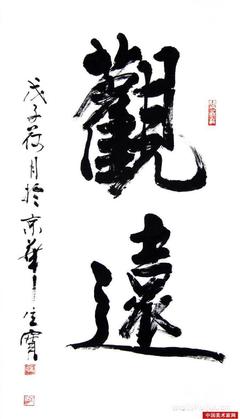 觀遠
戊子荷月於京華
中国美术家网